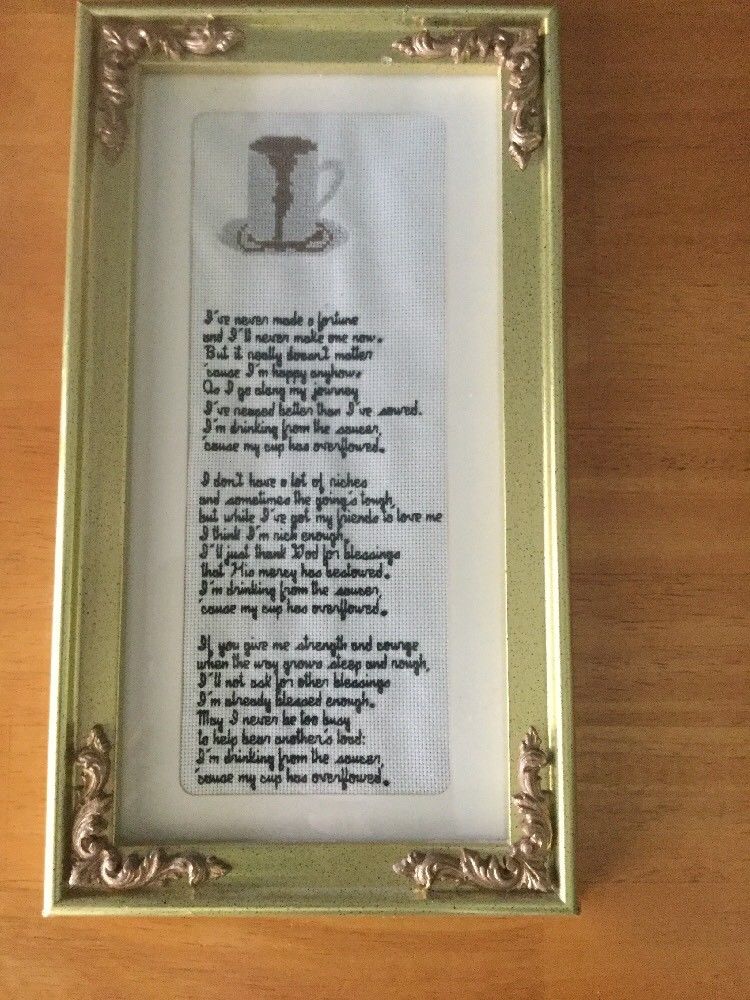 I've never made a fortune
and I'll never make one now.
But it really doesn't matter
'cause I'm happy anyhow.
As I go along my journey
I've reaped better than I've sowed.
I'm drinking from the saucer,
'cause my cup has overflowed.
I don't have a lot of riches
and sometimes the going's tough,
but while I've got my friends to love me
I think I'm rich enough.
I'll just thank God for blessings
that His mercy has bestowed.
I'm drinking from the saucer,
'cause my cup has overflowed.
If you give me strength and courage
when the way grows steep and rough,
I'll not ask for other blessings
I'm already blessed enough.
May I never be too busy
to help bear another's load.
I'm drinking from the saucer,
'cause my cup has overflowed.